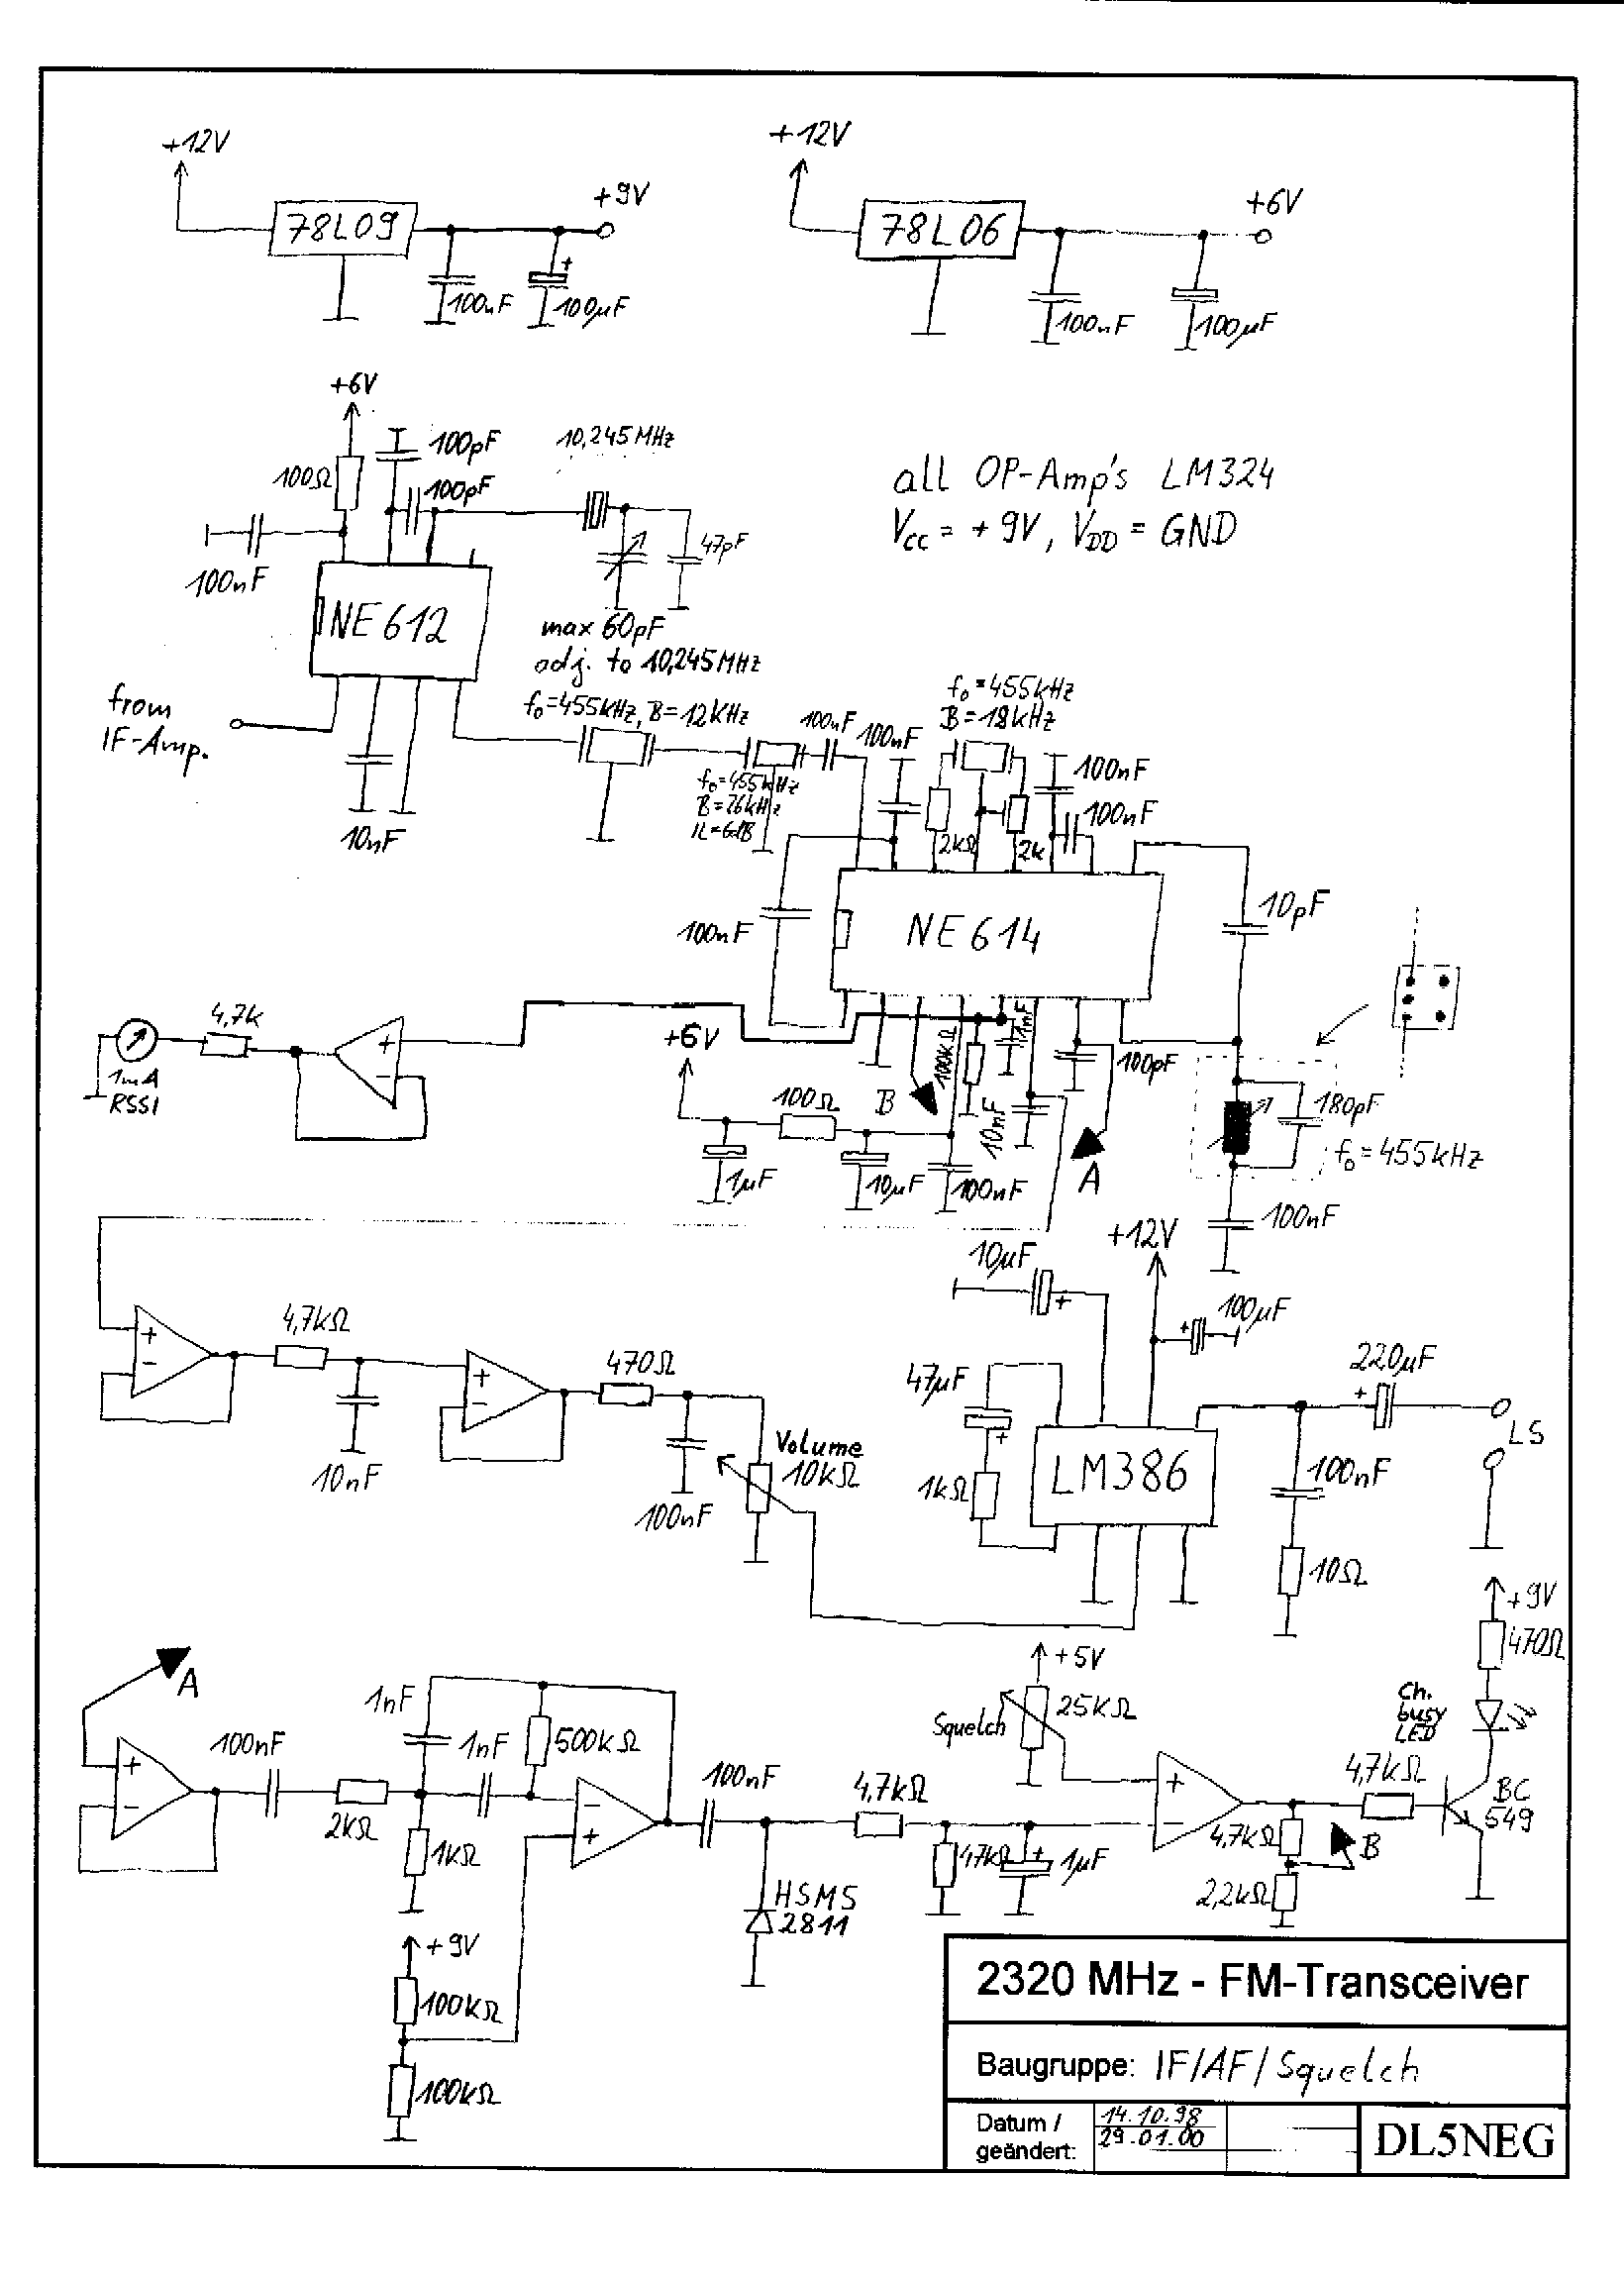 +12V
78L09
+9V
100nF
+
100µF
+12V
78L06
+6V
100nF
100µF
+6V
100Ω
100pF
100pF
10,245MHz
100nF
47pF
max 60pF
adj. to 10,245MHz
NE612
from
IF-Amp.
10nF
all OP-Amp's LM324
Vcc = +9V, VDD = GND
f₀=455kHz, B=12kHz
f₀=455kHz
B=26kHz
IL=6dB
100nF
100nF
f₀=455kHz
B=18kHz
100nF
100nF
2kΩ
2k
NE614
100nF
10pF
4,7k
+
-
1mA
RSSI
+6V
100Ω
1µF
10µF
100nF
B
100kΩ
1nF
10nF
100pF
A
180pF
f₀=455kHz
100nF
+
-
4,7kΩ
10nF
+
-
470Ω
100nF
Volume
10kΩ
10µF
+
+12V
+
100µF
47µF
+
1kΩ
LM386
220µF
+
LS
100nF
10Ω
A
+
-
100nF
2kΩ
1nF
1nF
500kΩ
1kΩ
-
+
+9V
100kΩ
100kΩ
100nF
HSMS
2811
4,7kΩ
47kΩ
+
1µF
+5V
Squelch
25kΩ
+
-
4,7kΩ
2,2kΩ
B
4,7kΩ
+9V
470Ω
Ch.
busy
LED
BC
549
2320 MHz - FM-Transceiver
Baugruppe: IF/AF/Squelch
Datum /
geändert:
14.10.98
29.01.00
DL5NEG